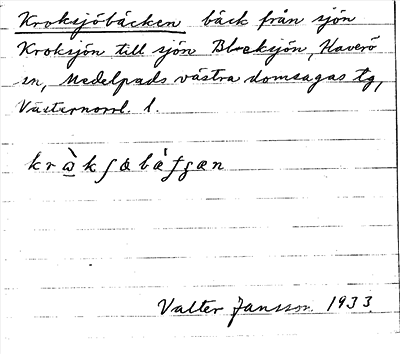 Kroksjöbäcken bäck från sjön
Kroksjön till sjön Blecksjön, Haverö
sn, Medelpads västra domsagas tg,
Västernorrl. l.
kr ὼ̲ k ʃ œ b ǽ ʃ g æ n
Valter Jansson. 1933.